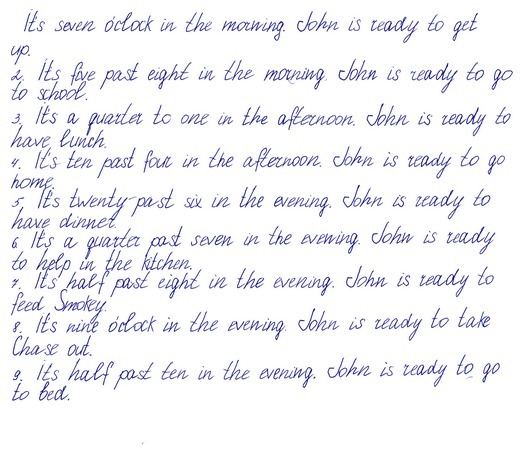 It's seven o'clock in the morning. John is ready to get
up.
2. It's five past eight in the morning. John is ready to go
to school.
3. It's a quarter to one in the afternoon. John is ready to
have lunch.
4. It's ten past four in the afternoon. John is ready to go
home.
5. It's twenty past six in the evening. John is ready to
have dinner.
6 It's a quarter past seven in the evening. John is ready
to help in the kitchen.
7. It's half past eight in the evening. John is ready to
feed Smokey.
8. It's nine o'clock in the evening. John is ready to take
Chase out.
9. It's half past ten in the evening. John is ready to go
to bed.